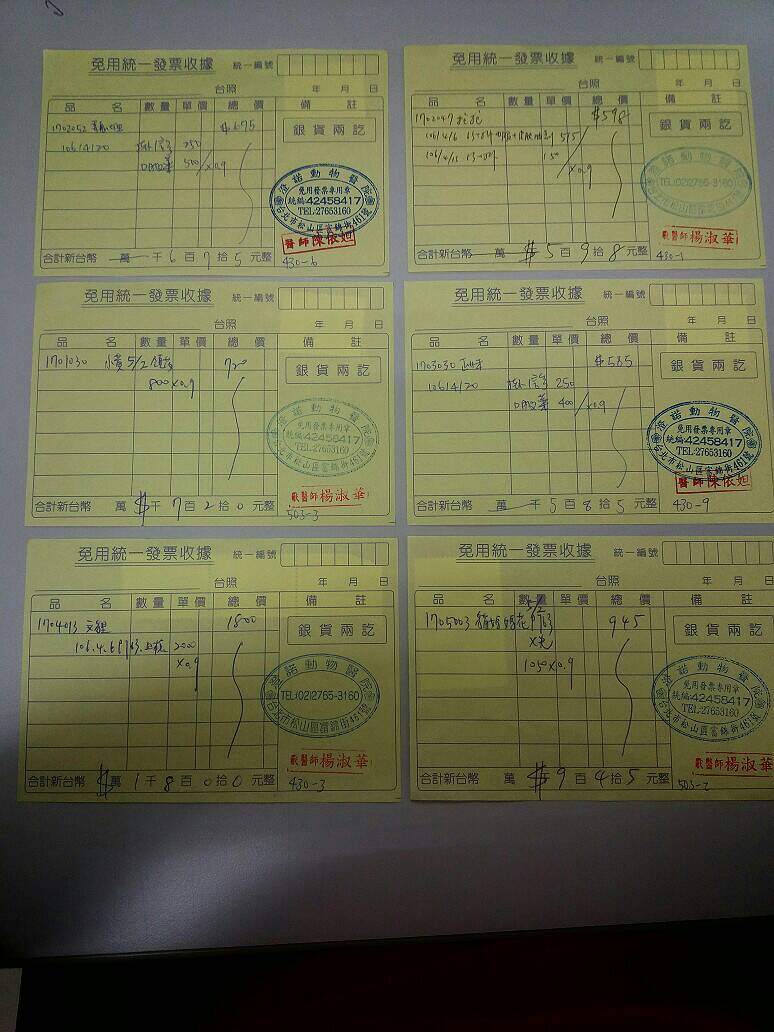 免用統一發票收據 統一編號
台照 年 月 日
品 名 數量 單價 總價 備註
1702052 $675
1061420 掛診 250
口服藥 500 ×0.9
銀貨兩訖
澄諾動物醫院
免用發票專用章
統編:42458417
TEL:27653160
台北市松山區富錦街461號
醫師陳依妲
合計新台幣 萬 千 6 百 7 拾 5 元整
430-6
免用統一發票收據 統一編號
台照 年 月 日
品 名 數量 單價 總價 備註
1702047 $598
106/4/6 515
106/4/15 150
×0.9
銀貨兩訖
TEL:(02)2765-3160
獸醫師楊淑華
合計新台幣 萬 $ 5 百 9 拾 8 元整
430-1
免用統一發票收據 統一編號
台照 年 月 日
品 名 數量 單價 總價 備註
1701030 小黃 5/2 720
800×0.9
銀貨兩訖
澄諾動物醫院
免用發票專用章
統編:42458417
TEL:27653160
台北市松山區富錦街461號
獸醫師楊淑華
合計新台幣 萬 $ 千 7 百 2 拾 0 元整
503-3
免用統一發票收據 統一編號
台照 年 月 日
品 名 數量 單價 總價 備註
1703030 $585
1061420 掛診 250
口服藥 400 ×0.9
銀貨兩訖
澄諾動物醫院
免用發票專用章
統編:42458417
TEL:27653160
台北市松山區富錦街461號
醫師陳依妲
合計新台幣 萬 千 5 百 8 拾 5 元整
430-9
免用統一發票收據 統一編號
台照 年 月 日
品 名 數量 單價 總價 備註
1704013 文狸 1800
106.4.6 2000
×0.9
銀貨兩訖
澄諾動物醫院
TEL:(02)2765-3160
台北市松山區富錦街461號
獸醫師楊淑華
合計新台幣 $ 萬 1 千 8 百 0 拾 0 元整
430-3
免用統一發票收據 統一編號
台照 年 月 日
品 名 數量 單價 總價 備註
5/2
1705003 945
X光
1050×0.9
銀貨兩訖
澄諾動物醫院
免用發票專用章
統編:42458417
TEL:27653160
台北市松山區富錦街461號
獸醫師楊淑華
合計新台幣 萬 $ 9 百 4 拾 5 元整
503-2